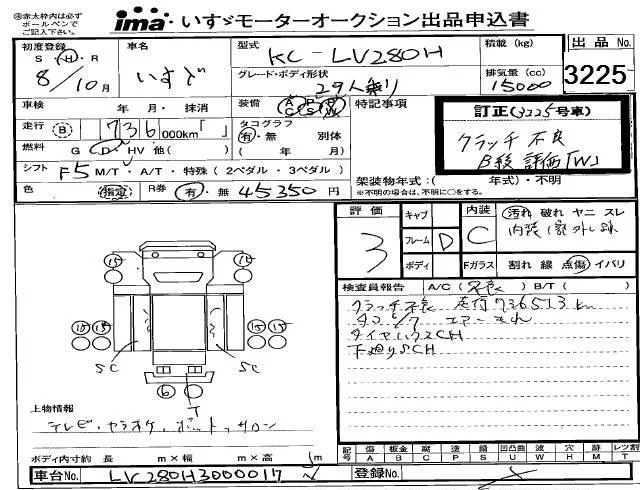 ㊟赤太枠内は必ず
ボールペンで
ご記入下さい。
ima・いすゞモーターオークション出品申込書
初度登録
S・H・R
8/10月
車名
いすゞ
型式
KC-LV280H
積載 (kg)
出品 No.
3225
グレード・ボディ形状
29人乗り
排気量 (cc)
15000
車検 年 月・抹消
装備 AC PS PW
特記事項
訂正(3225号車)
クラッチ不良
B級 評価「W」
走行 B 736 000km「 」
タコグラフ
有・無 別体
( 年 月)
燃料 G D HV 他( )
シフト F5 M/T・A/T・特殊(2ペダル・3ペダル)
架装物年式:( 年式)・不明
※不明の場合は、不明に○をする。
色 (指定) R券 有・無 45350円
評価 3
キャブ
フレーム D
ボディ
内装 C
汚れ 破れ ヤニ スレ
Fガラス 割れ 線 点傷 イバリ
検査員報告 A/C(不良) B/T( )
クラッチ不良 走行736513km
エアーもれ
タイヤハウスCH
下廻りSCH
15 15
15 15 15 15
SC SC
6
T
上物情報
テレビ・カラオケ・ポット・サロン
ボディ内寸約 長 m×幅 m×高 m
記号 傷A 板金B 腐C 塗P 錆S 凹凸曲U 波W 穴H 跡M レツ割T
車台No. LV280H3000017
登録No.